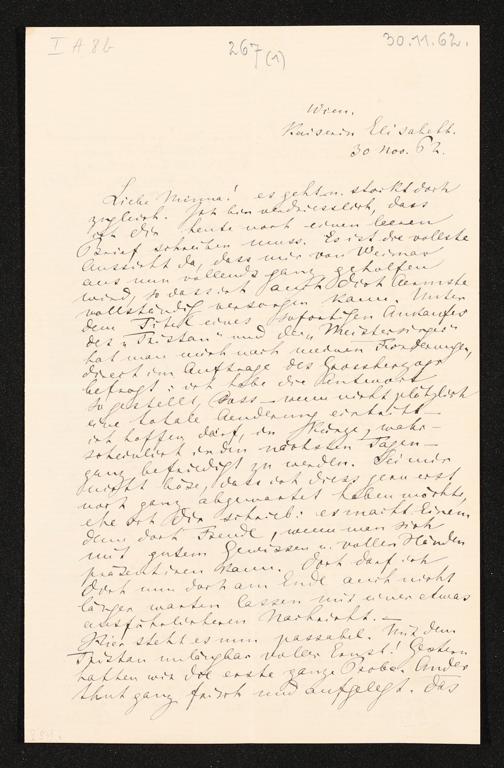 I A 8b
267 (1)
30.11.62.
Wien.
Kaiserin Elisabeth.
30 Nov. 62.
Liebe Minna! es geht u. stockt doch
zugleich. Ich bin verdriesslich, dass
ich Dir heute noch einen leeren
Brief schreiben muss. Es ist die vollste
Aussicht da, dass mir von Weimar
aus nun vollends ganz geholfen
wird, so dass ich auch Dich Aermste
vollständig versorgen kann. Unter
dem Titel eines sofortigen Ankaufes
des „Tristan" und der „Meistersinger"
hat man mich nach meinen Forderungen,
direct im Auftrage des Grossherzogs
befragt: ich habe die Antwort
so gestellt, dass – wenn nicht plötzlich
eine totale Aenderung eintritt –
ich hoffen darf, in Kürze, wahr-
scheinlich in den nächsten Tagen –
ganz befriedigt zu werden. Sei mir
nicht böse, dass ich diess gern erst
noch ganz abgewartet haben möchte,
ehe ich Dir schrieb: es macht Einem
denn doch Freude, wenn man sich
mit gutem Gewissen u. vollen Händen
präsentiren kann. Doch darf ich
Dich nun doch am Ende auch nicht
länger warten lassen mit einer etwas
ausführlicheren Nachricht. –
Hier steht es nun passabel. Mit dem
Tristan unläugbar voller Ernst! Gestern
hatten wir die erste ganze Probe. Ander
thut ganz frisch und aufgelegt. Das